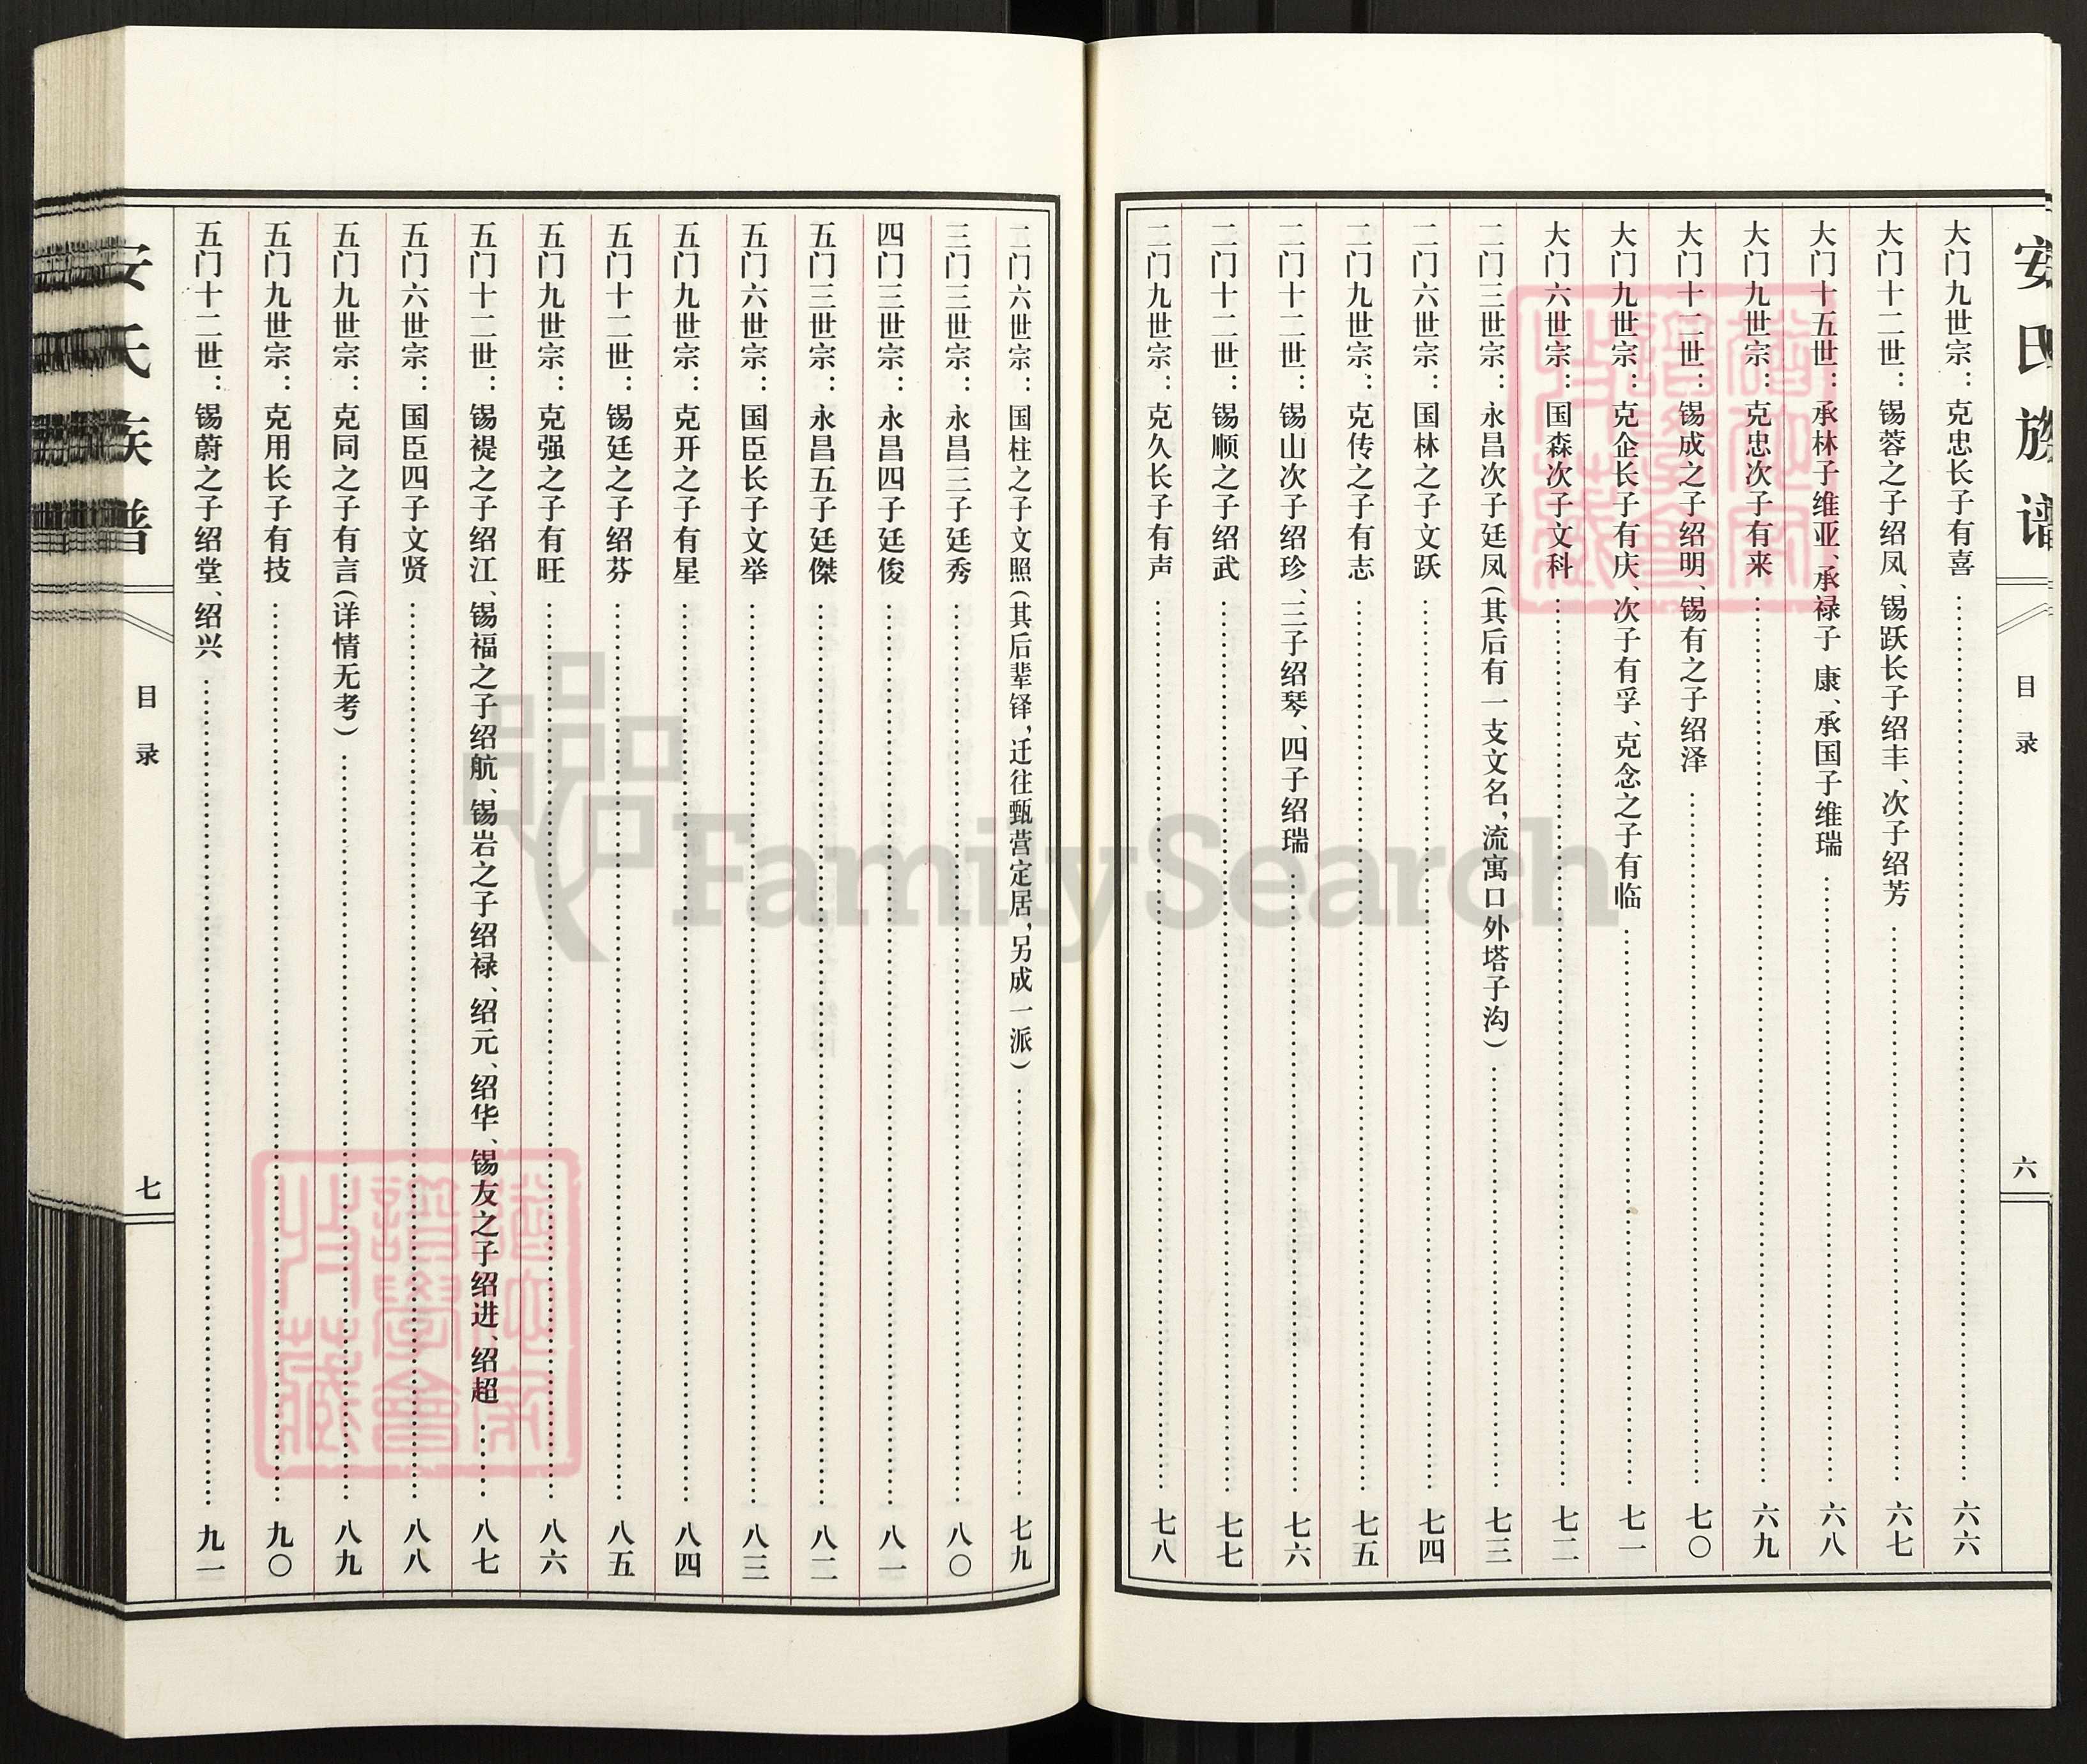 安氏族谱
目录
六
大门九世宗：克忠长子有喜……六六
大门十二世：锡蓉之子绍凤、锡跃长子绍丰、次子绍芳……六七
大门十五世：承林子维亚、承禄子 康、承国子维瑞……六八
大门九世宗：克忠次子有来……六九
大门十二世：锡成之子绍明、锡有之子绍泽……七〇
大门九世宗：克企长子有庆、次子有孚、克念之子有临……七一
大门六世宗：国森次子文科……七二
二门三世宗：永昌次子廷凤(其后有一支文名，流寓口外塔子沟)……七三
二门六世宗：国林之子文跃……七四
二门九世宗：克传之子有志……七五
二门十二世：锡山次子绍珍、三子绍琴、四子绍瑞……七六
二门十二世：锡顺之子绍武……七七
二门九世宗：克久长子有声……七八
二门六世宗：国柱之子文照(其后辈铎，迁往甄营定居，另成一派)……七九
三门三世宗：永昌三子廷秀……八〇
四门三世宗：永昌四子廷俊……八一
五门三世宗：永昌五子廷傑……八二
五门六世宗：国臣长子文举……八三
五门九世宗：克开之子有星……八四
五门十二世：锡廷之子绍芬……八五
五门九世宗：克强之子有旺……八六
五门十二世：锡禔之子绍江、锡福之子绍航、锡岩之子绍禄、绍元、绍华、锡友之子绍进、绍超……八七
五门六世宗：国臣四子文贤……八八
五门九世宗：克同之子有言(详情无考)……八九
五门九世宗：克用长子有技……九〇
五门十二世：锡蔚之子绍堂、绍兴……九一
安氏族谱
目录
七
FamilySearch